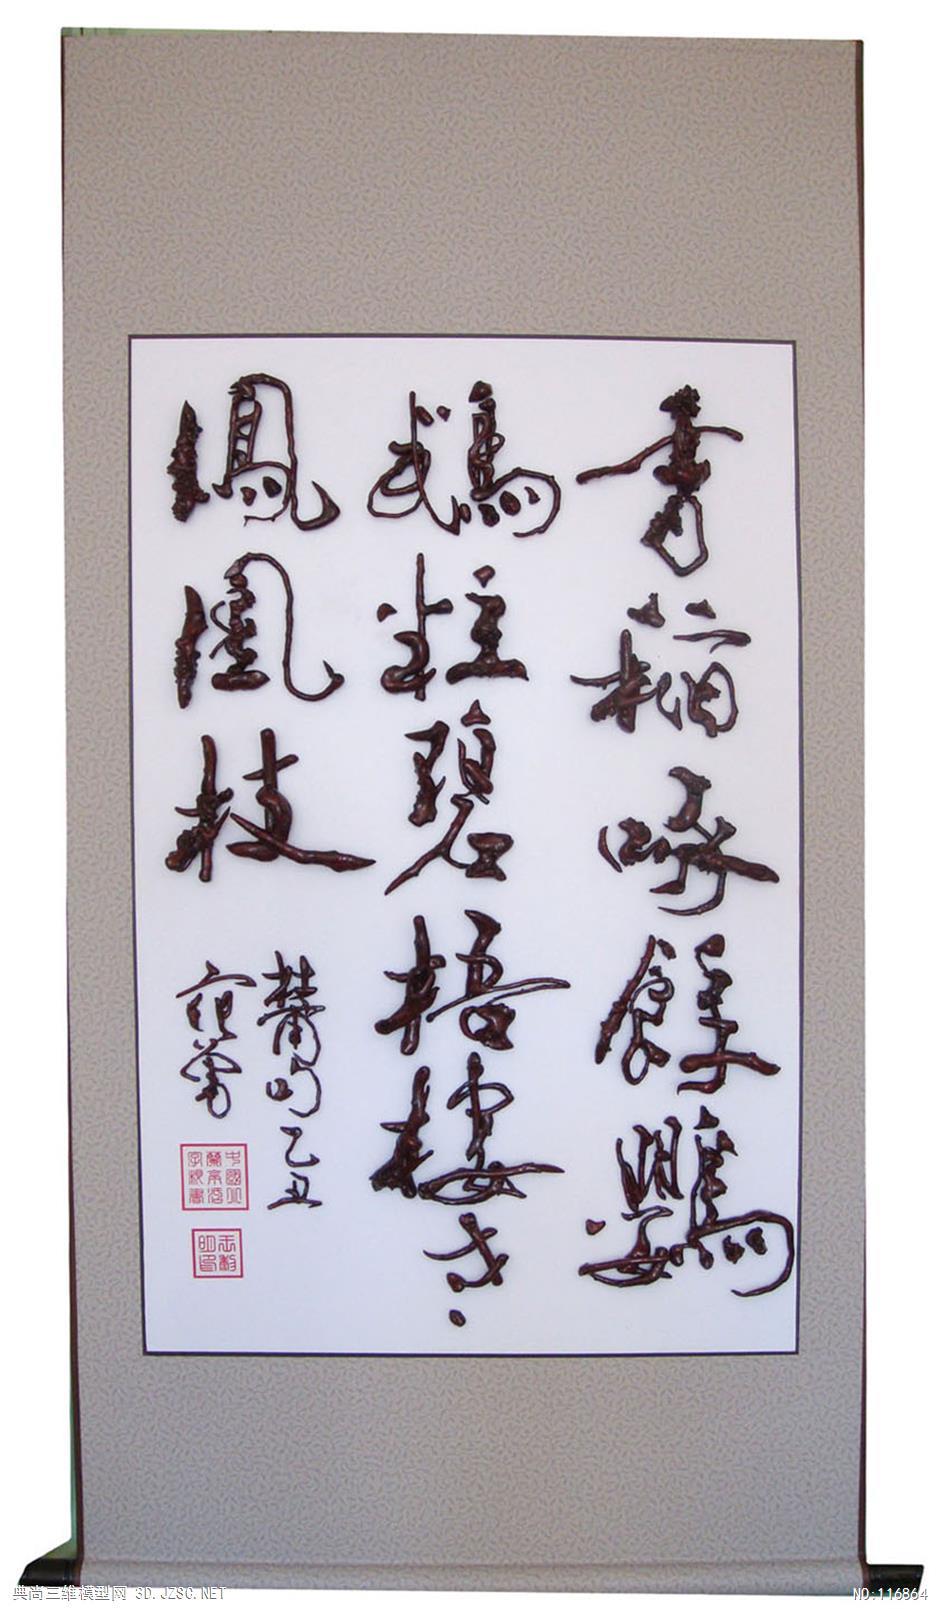 香稻啄餘鸚
鵡粒碧梧棲老
鳳凰枝
杜甫句乙丑
典尚三维模型网 3D.JZSC.NET
NO:116864